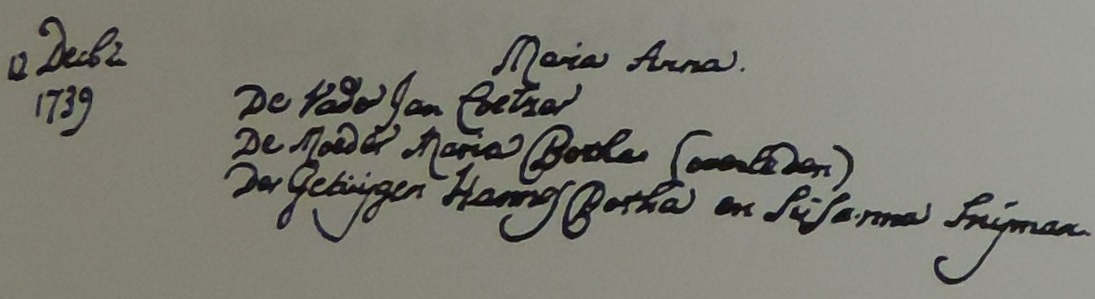 12 Decbr Maria Anna.
1739
De Vader Jan Coetzer
De Moeder Maria Botha (overleden)
Der Getuijgen Hanns Botha en Susanna Snijman.